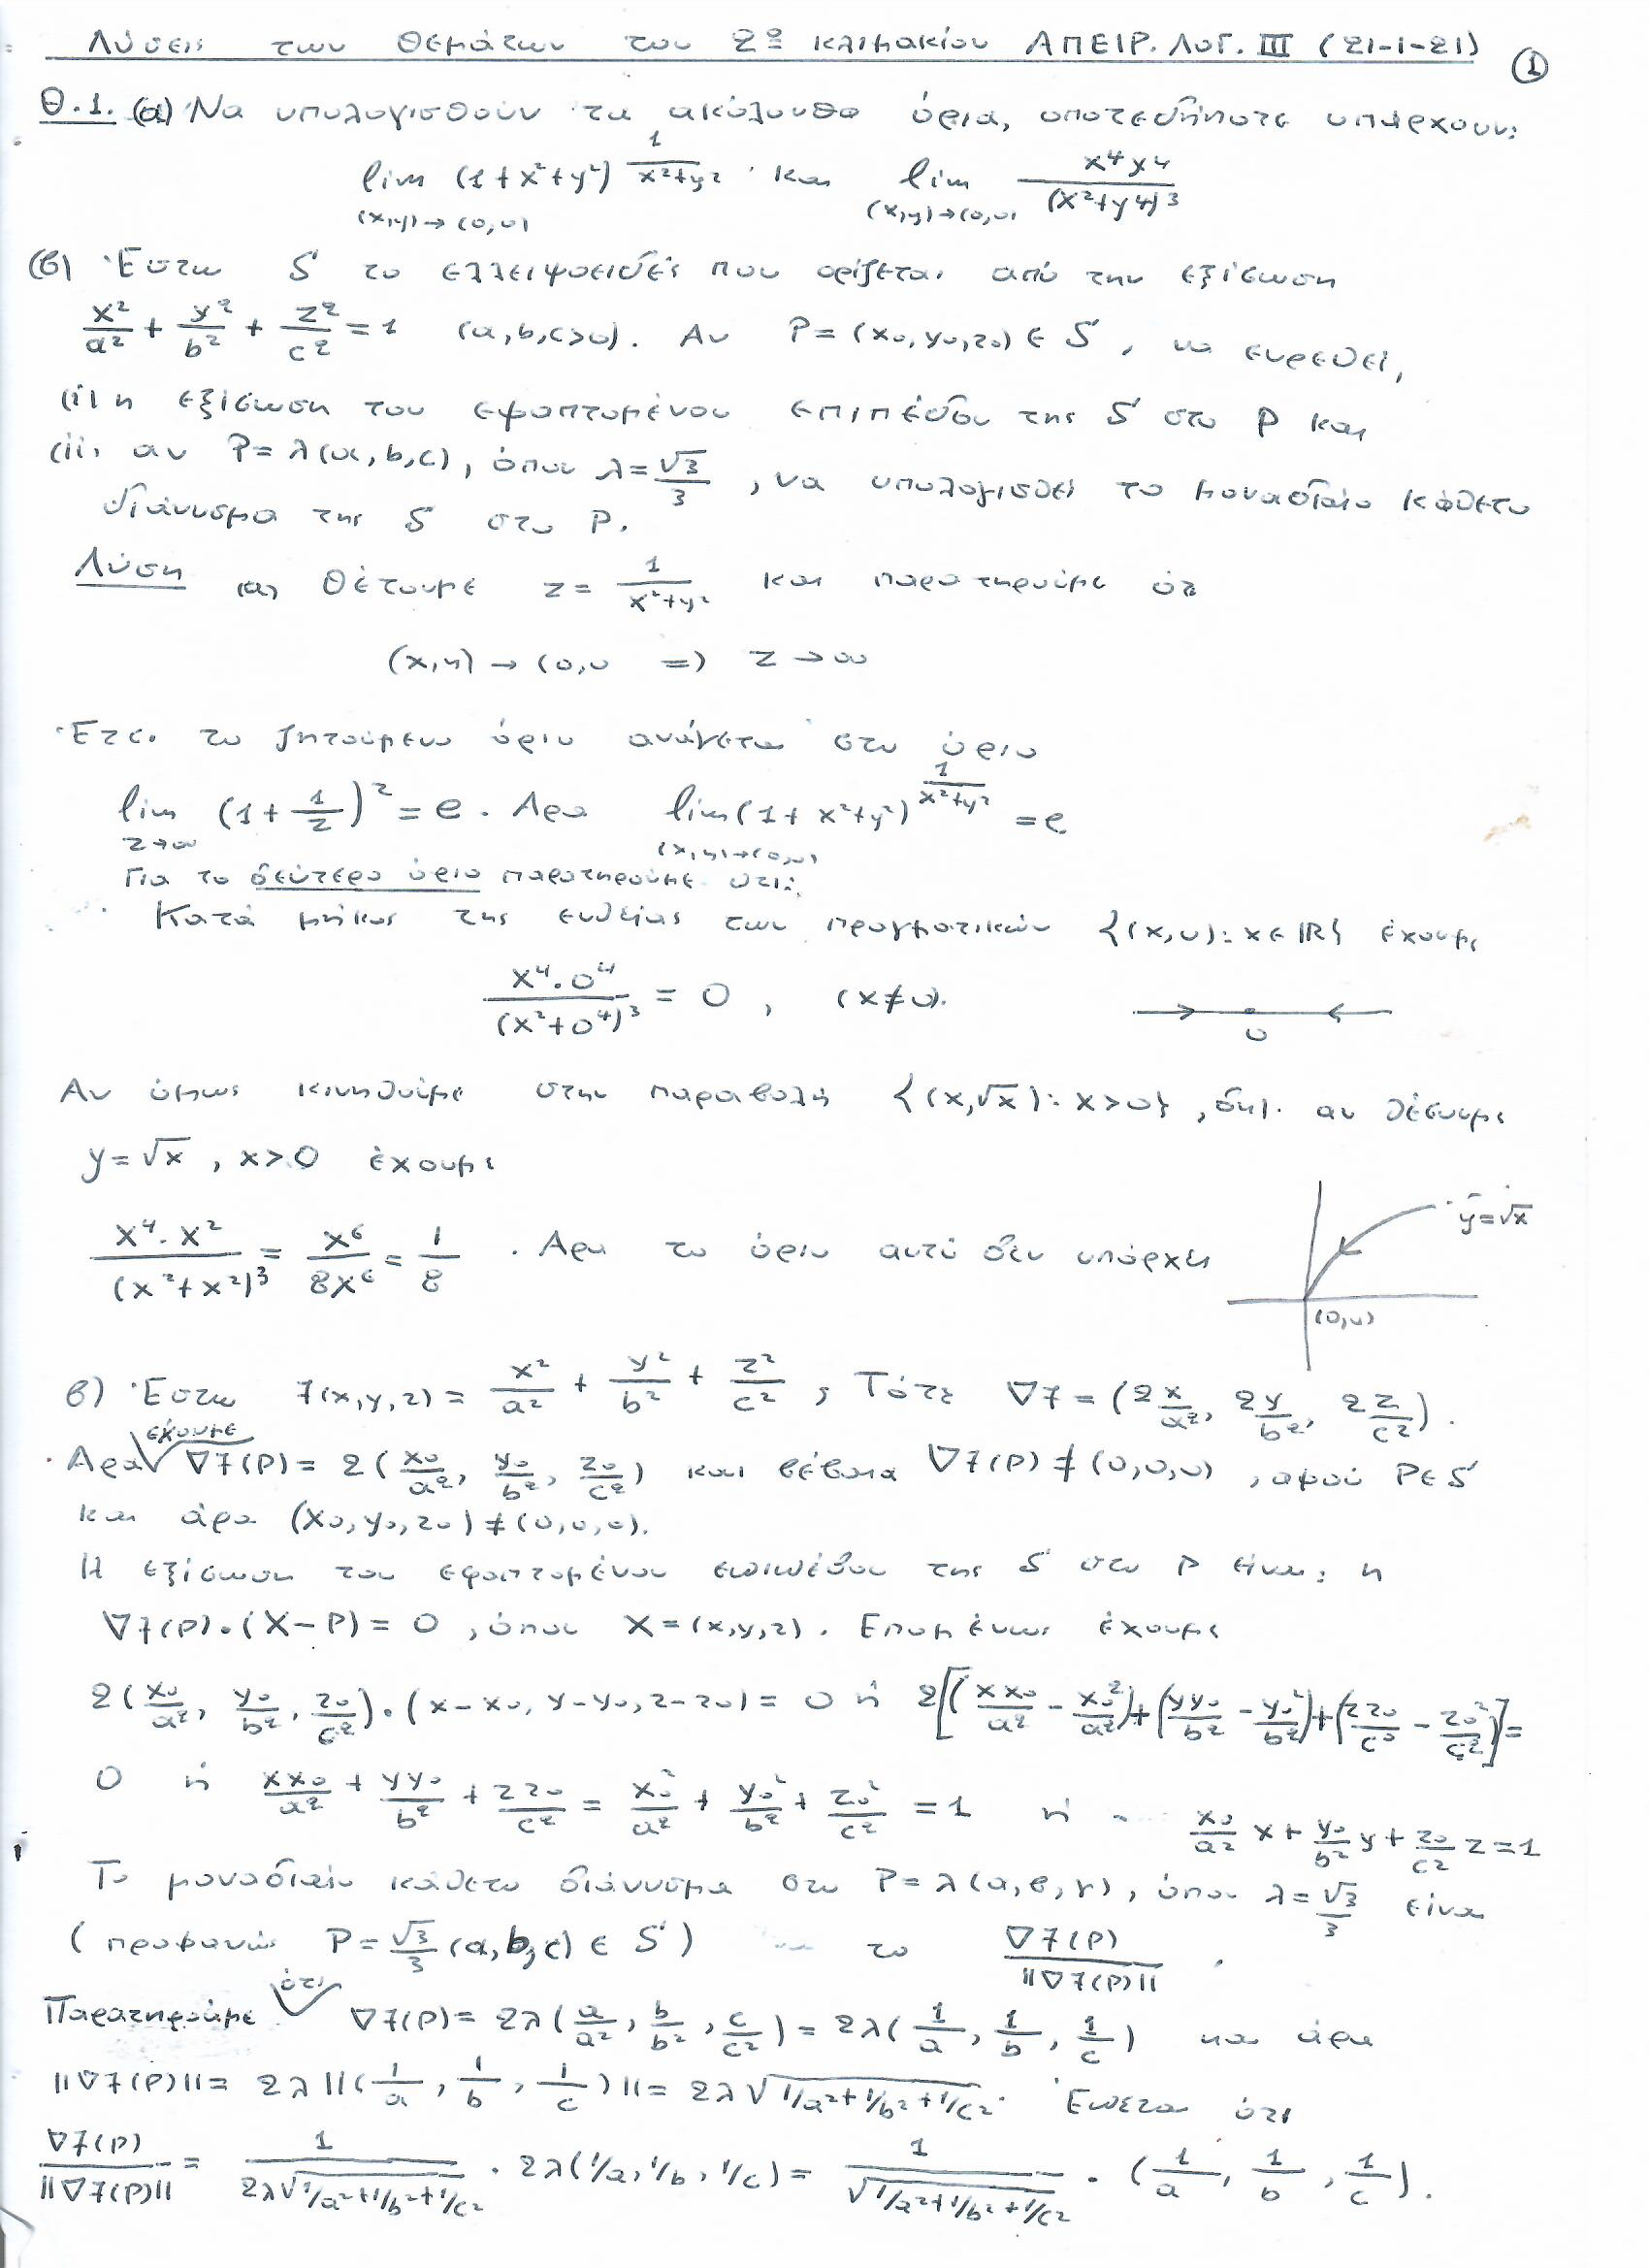 Λύσεις των Θεμάτων του 2ου κλιμακίου ΑΠΕΙΡ. ΛΟΓ. ΙΙΙ (21-1-21) ①
Θ.1. (α) Να υπολογισθούν τα ακόλουθα όρια, οποτεδήποτε υπάρχουν:
lim_{(x,y)→(0,0)} (1+x²+y²)^{1/(x²+y²)} και lim_{(x,y)→(0,0)} x⁴y⁴/(x²+y⁴)³
(β) Έστω S το ελλειψοειδές που ορίζεται από την εξίσωση
x²/a² + y²/b² + z²/c² = 1 (a,b,c>0). Αν P=(x₀,y₀,z₀) ∈ S, να ευρεθεί,
(i) η εξίσωση του εφαπτομένου επιπέδου της S στο P και
(ii) αν P=λ(a,b,c), όπου λ=√3/3, να υπολογισθεί το μοναδιαίο κάθετο
διάνυσμα της S στο P.
Λύση (α) Θέτουμε z = 1/(x²+y²) και παρατηρούμε ότι
(x,y)→(0,0 ⇒) z→∞
Έτσι το ζητούμενο όριο ανάγεται στο όριο
lim_{z→∞} (1+1/z)^z = e. Άρα lim_{(x,y)→(0,0)} (1+x²+y²)^{1/(x²+y²)} = e
Για το δεύτερο όριο παρατηρούμε ότι:
Κατά μήκος της ευθείας των πραγματικών {(x,0): x∈ℝ} έχουμε
x⁴·0⁴/(x²+0⁴)³ = 0, (x≠0).
0
Αν όμως κινηθούμε στην παραβολή {(x,√x): x>0}, δηλ. αν θέσουμε
y=√x, x>0 έχουμε
y=√x
x⁴·x²/(x²+x²)³ = x⁶/8x⁶ = 1/8. Άρα το όριο αυτό δεν υπάρχει
(0,0)
β) Έστω f(x,y,z) = x²/a² + y²/b² + z²/c², Τότε ∇f = (2x/a², 2y/b², 2z/c²).
Άρα έχουμε ∇f(P) = 2(x₀/a², y₀/b², z₀/c²) και βέβαια ∇f(P)≠(0,0,0), αφού P∈S
και άρα (x₀,y₀,z₀)≠(0,0,0).
Η εξίσωση του εφαπτομένου επιπέδου της S στο P είναι η
∇f(P)·(X−P) = 0, όπου X=(x,y,z). Επομένως έχουμε
2(x₀/a², y₀/b², z₀/c²)·(x−x₀, y−y₀, z−z₀) = 0 ή 2[(xx₀/a² − x₀²/a²)+(yy₀/b² − y₀²/b²)+(zz₀/c² − z₀²/c²)] =
0 ή xx₀/a² + yy₀/b² + zz₀/c² = x₀²/a² + y₀²/b² + z₀²/c² = 1 ή x₀/a² x + y₀/b² y + z₀/c² z = 1
Το μοναδιαίο κάθετο διάνυσμα στο P=λ(α,β,γ), όπου λ=√3/3 είναι
(προφανώς P=√3/3(a,b,c) ∈ S) το ∇f(P)/||∇f(P)||.
Παρατηρούμε ότι ∇f(P) = 2λ(a/a², b/b², c/c²) = 2λ(1/a, 1/b, 1/c) και άρα
||∇f(P)|| = 2λ||(1/a, 1/b, 1/c)|| = 2λ√(1/a²+1/b²+1/c²). Έπεται ότι
∇f(P)/||∇f(P)|| = 1/(2λ√(1/a²+1/b²+1/c²)) · 2λ(1/a,1/b,1/c) = 1/√(1/a²+1/b²+1/c²) · (1/a, 1/b, 1/c).